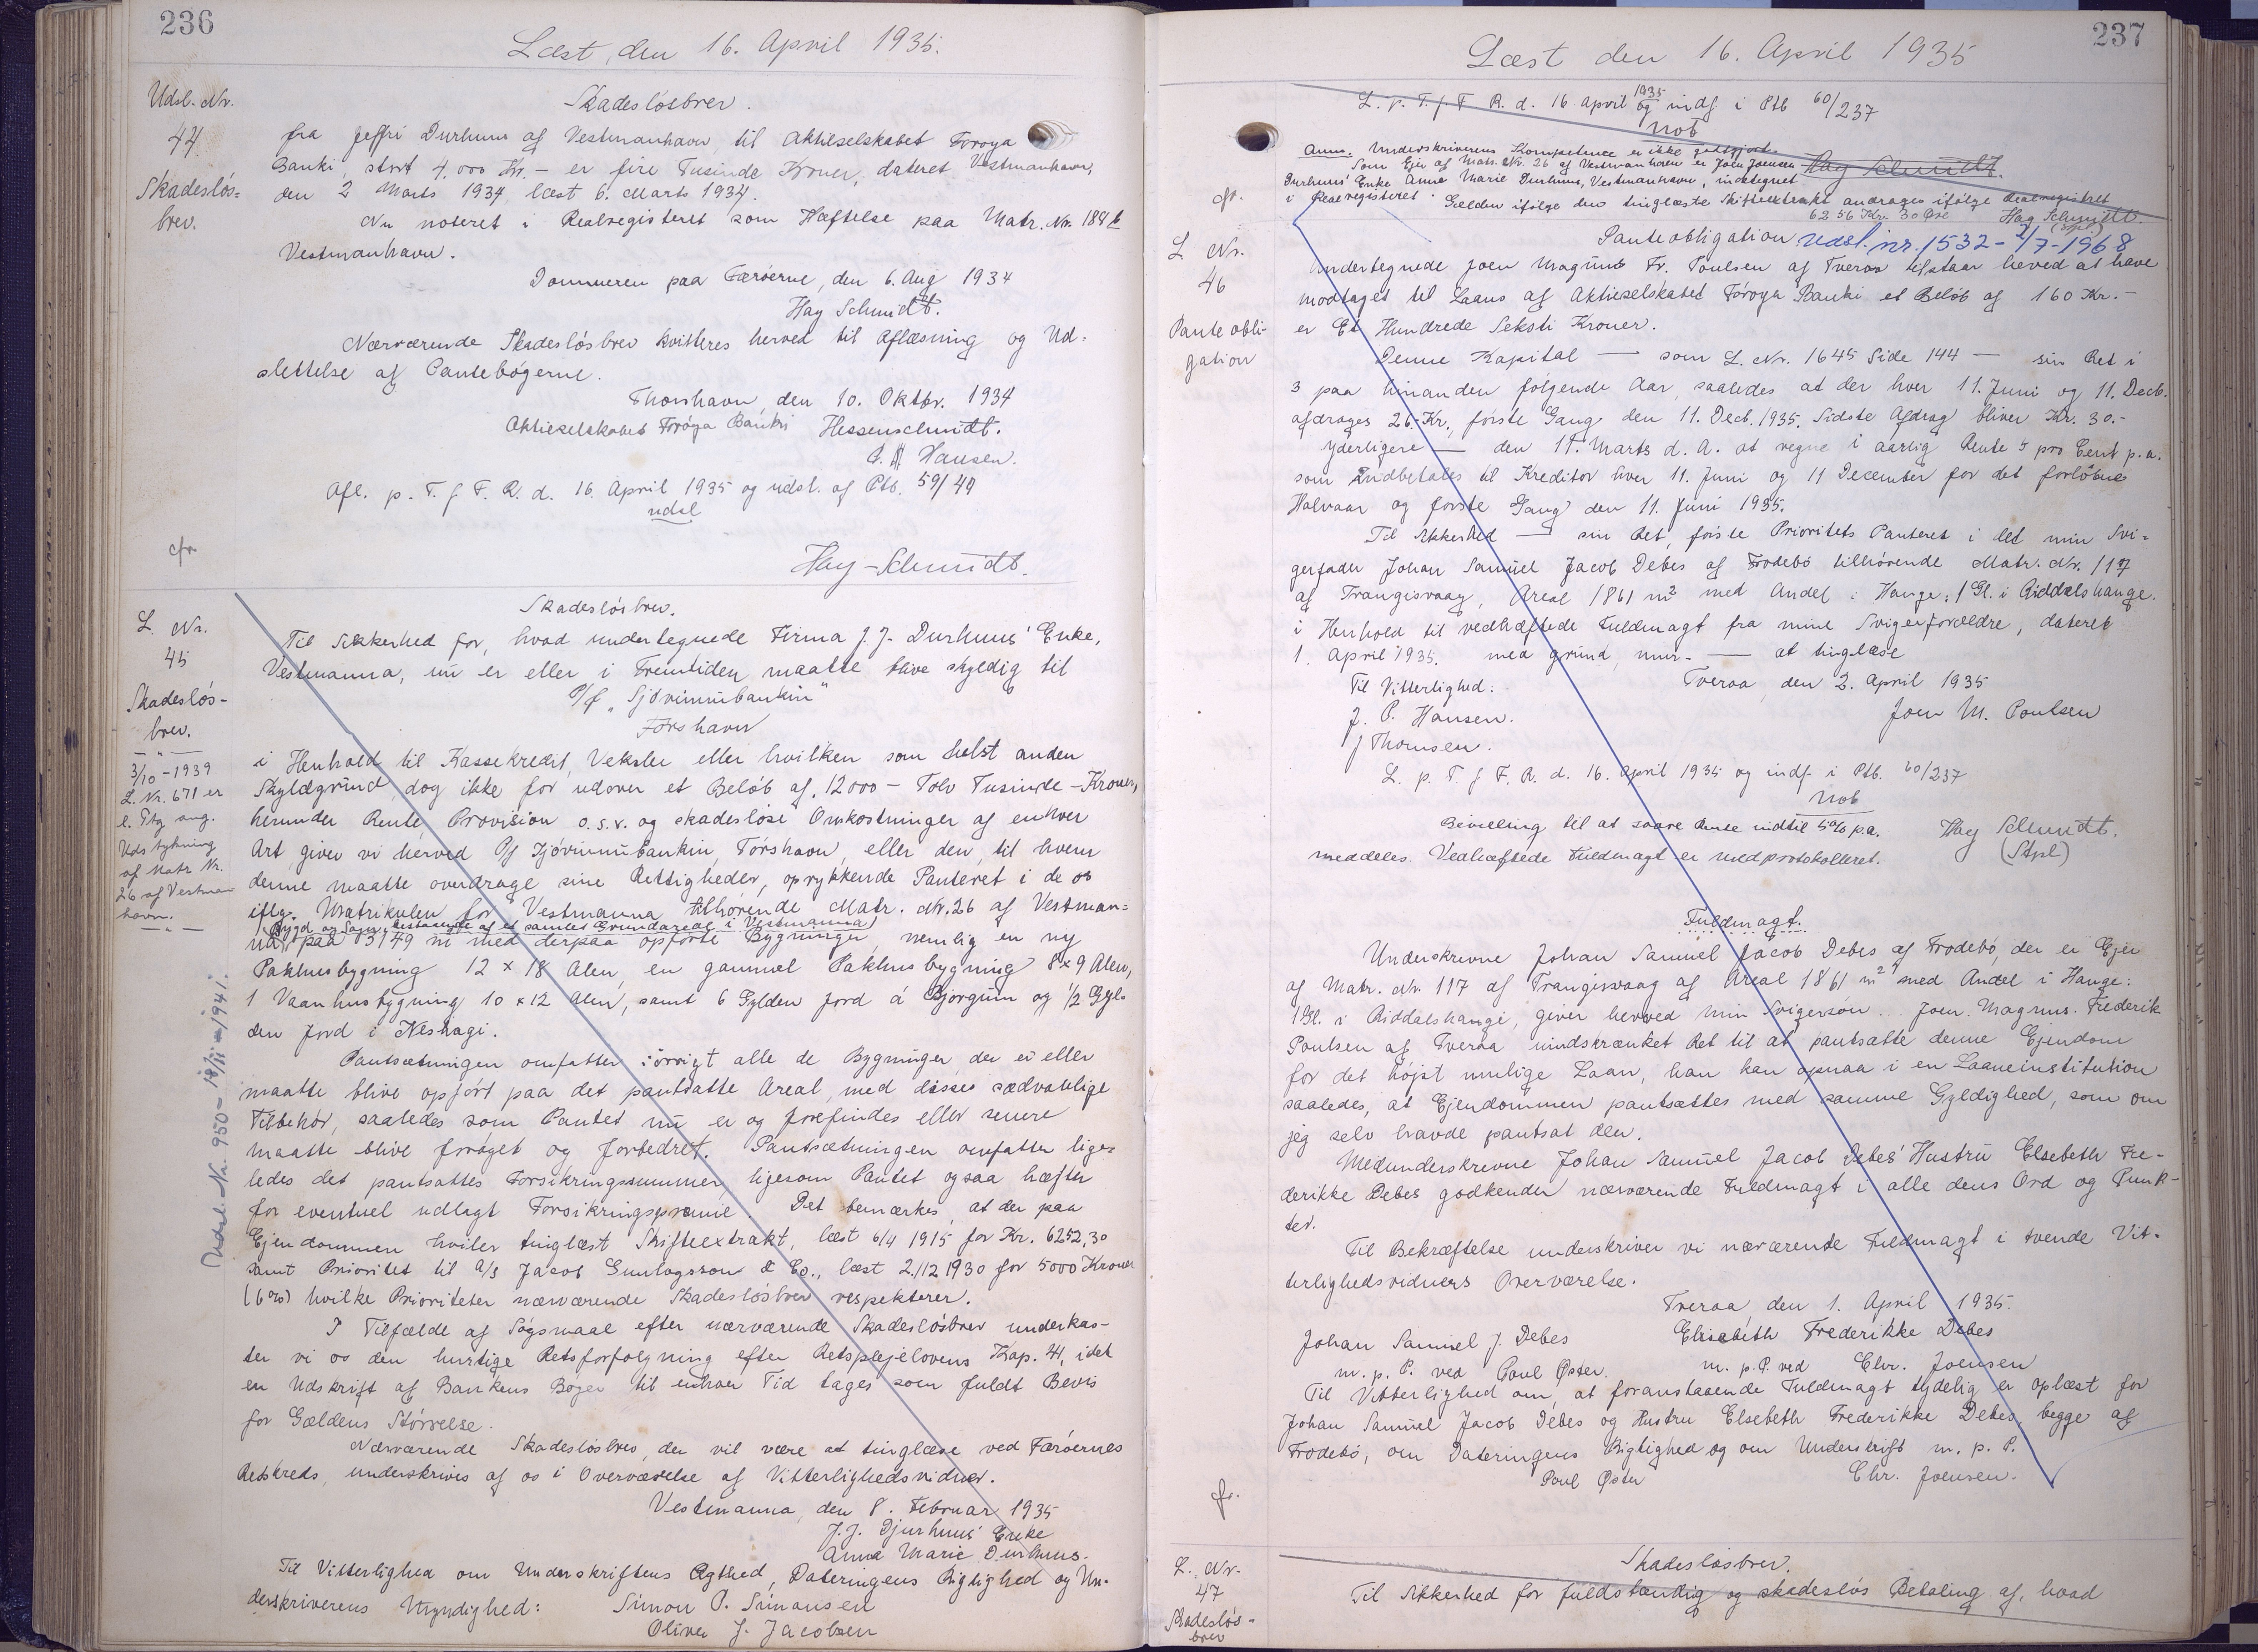 236
Læst, den 16. April 1935.
Udsl. Nr.
44
Skadesløs=
brev.
Skadesløsbrev.
fra Jeffri Durhuus af Vestmanhavn til Aktieselskabet Føroya
Banki, stort 4.000 Kr. – er fire Tusinde Kroner, dateret Vestmanhavn,
den 2 Marts 1934, læst 6. Marts 1934.
Nu noteret i Realregisteret som Hæftelse paa Matr. Nr. 188 b
Vestmanhavn.
Dommeren paa Færøerne, den 6. Aug 1934
Hay Schmidt.
Nærværende Skadesløsbrev kvitteres herved til Aflæsning og Ud-
slettelse af Pantebøgerne.
Thorshavn, den 10. Oktbr. 1934
Aktieselskabet Føroya Banki Hessenschmidt.
Hansen.
Afl. p. T. f F. R. d. 16. April 1935 og udsl. af Ptb. 59/49
udsl
cfr.
Hay-Schmidt.
L. Nr.
45
Skadesløs-
brev.
— " —
3/10 - 1939
L. Nr. 671 er
l. Ptg ang.
Udstykning
af Matr Nr.
26 af Vestman
havn.
— " —
Udsl. Nr. 950 - 19/11 - 1941.
Skadesløsbrev.
Til Sikkerhed for, hvad undertegnede Firma J. J. Durhuus' Enke,
Vestmanna, nu er eller i Fremtiden maatte blive skyldig til
P/f „Sjóvinnubankin"
Tórshavn
i Henhold til Kassekredit, Veksler eller hvilken som helst anden
Skyldgrund, dog ikke for udover et Beløb af 12000 – Tolv Tusinde – Kroner,
herunder Rente, Provision o.s.v. og skadesløse Omkostninger af enhver
Art, giver vi herved P/f Sjóvinnubankin, Tórshavn, eller den, til hvem
denne maatte overdrage sine Rettigheder, oprykkende Panteret i de os
iflg. Matrikulen for Vestmanna tilhørende Matr. Nr. 26 af Vestman=
Bygd og Sogn, bestaaende af et samlet Grundareal i Vestmanna
na paa 3149 m² med derpaa opførte Bygninger, nemlig en ny
Pakhusbygning 12 × 18 Alen, en gammel Pakhusbygning 8×9 Alen,
1 Vaanhusbygning 10 × 12 Alen, samt 6 Gylden Jord á Bjørgum og 1/2 Gyl-
den Jord i Neshagi.
Pantsætningen omfatter iøvrigt alle de Bygninger, der er eller
maatte blive opført paa det pantsatte Areal, med disses sædvanlige
Tilbehør, saaledes som Pantet nu er og forefindes eller senere
maatte blive forøget og forbedret. Pantsætningen omfatter lige-
ledes det pantsattes Forsikringssummer, ligesom Pantet ogsaa hæfter
for eventuel udlagt Forsikringspræmie. Det bemærkes, at der paa
Ejendommen hviler tinglæst Skifteextrakt, læst 6/4 1915 for Kr. 6252,30
samt Prioritet til A/S Jacob Gunlogsson & Co., læst 2./12 1930 for 5000 Kroner
(6%) hvilke Prioriteter nærværende Skadesløsbrev respekterer.
I Tilfælde af Søgsmaal efter nærværende Skadesløsbrev underkas-
ter vi os den hurtige Retsforfølgning efter Retsplejelovens Kap. 41, idet
en Udskrift af Bankens Bøger til enhver Tid tages som fuldt Bevis
for Gældens Størrelse.
Nærværende Skadesløsbrev, der vil være at tinglæse ved Færøernes
Retskreds, underskrives af os i Overværelse af Vitterlighedsvidner.
Vestmanna, den 8. Februar 1935
J. J. Djurhuus' Enke
Anna Marie Durhuus.
Til Vitterlighed om Underskriftens Ægthed, Dateringens Rigtighed og Un-
derskriverens Myndighed: Simon P. Simonsen
Oliver J. Jacobsen
237
Læst den 16. April 1935
L. p. T. f. F R. d. 16. april 1935 og indf. i Ptb 60/237
not
Anm. Underskriverens Kompetence er ikke godtgjort. Hay Schmidt.
Som Ejer af Matr. Nr. 26 af Vestmanhavn er Joen Joensen
Durhuus' Enke Anna Marie Durhuus, Vestmanhavn, indtegnet
i Realregisteret. Gælden ifølge den tinglæste Skifteextrakt andrages ifølge Realregistret
6256 Kr. 30 Øre Hay Schmidt.
(Stpl)
cfr.
L Nr.
46
Pante obli-
gation
Panteobligation Udsl. nr. 1532 - 2/7 - 1968
Undertegnede Joen Magnus Fr. Poulsen af Tveraa tilstaar herved at have
modtaget til Laans af Aktieselskabet Føroya Banki et Beløb af 160 Kr. –
er Et Hundrede Seksti Kroner.
Denne Kapital — som L. Nr. 1645 Side 144 — sin Ret i
3 paa hinanden følgende Aar, saaledes at der hver 11. Juni og 11. Decb.
afdrages 26,- Kr., første Gang den 11. Decb. 1935. Sidste Afdrag bliver Kr. 30.-
Yderligere — den 11. Marts d. A. at regne i aarlig Rente 5 pro Cent p.a.
som indbetales til Kreditor hver 11. Juni og 11 December for det forløbne
Halvaar og første Gang den 11. Juni 1935.
Til Sikkerhed — sin Ret, første Prioritets Panteret i det min Svi-
gerfader Johan Samuel Jacob Debes af Frodebø tilhørende Matr. Nr. 117
af Trangisvaag, Areal 1861 m² med Andel i Hauge; 1 Gl. i Riddalshauge.
i Henhold til vedhæftede Fuldmagt fra mine Svigerforældre, dateret
1. April 1935. med grund, mur- — at tinglæse
Til Vitterlighed: Tveraa, den 2. April 1935
J. P. Hansen. Joen M. Poulsen
J Thomsen.
L. p. T. f F. R. d. 16. April 1935 og indf. i Ptb. 60/237
not
Bevilling til at svare Rente indtil 5% p.a. Hay Schmidt.
meddeles. Vedhæftede Fuldmagt er medprotokolleret. (Stpl)
Fuldmagt.
Underskrevne Johan Samuel Jacob Debes af Frodebø, der er Ejer
af Matr. Nr. 117 af Trangisvaag af Areal 1861 m² med Andel i Hauge:
1 Gl. i Riddalshauge, giver herved min Svigersøn Joen Magnus Frederik
Poulsen af Tveraa uindskrænket Ret til at pantsætte denne Ejendom
for det højst mulige Laan, han kan opnaa i en Laaneinstitution
saaledes, at Ejendommen pantsættes med samme Gyldighed, som om
jeg selv havde pantsat den.
Medunderskrevne Johan Samuel Jacob Debes' Hustru Elsebeth Fre-
derikke Debes godkender nærværende Fuldmagt i alle dens Ord og Punk-
ter.
Til Bekræftelse underskriver vi nærværende Fuldmagt i tvende Vit-
terlighedsvidners Overværelse.
Tveraa, den 1. April 1935.
Johan Samuel J. Debes Elisabeth Frederikke Debes
m. p. P. ved Poul Øster. m. p. P. ved Chr. Joensen
Til Vitterlighed om, at foranstaaende Fuldmagt tydelig er oplæst for
Johan Samuel Jacob Debes og Hustru Elsebeth Frederikke Debes, begge af
Frodebø, om Dateringens Rigtighed og om Underskrift m. p. P.
Poul Øster Chr. Joensen.
cfr.
L. Nr.
47
Skadesløs-
brev
Skadesløsbrev.
Til Sikkerhed for fuldstændig og skadesløs Betaling af, hvad